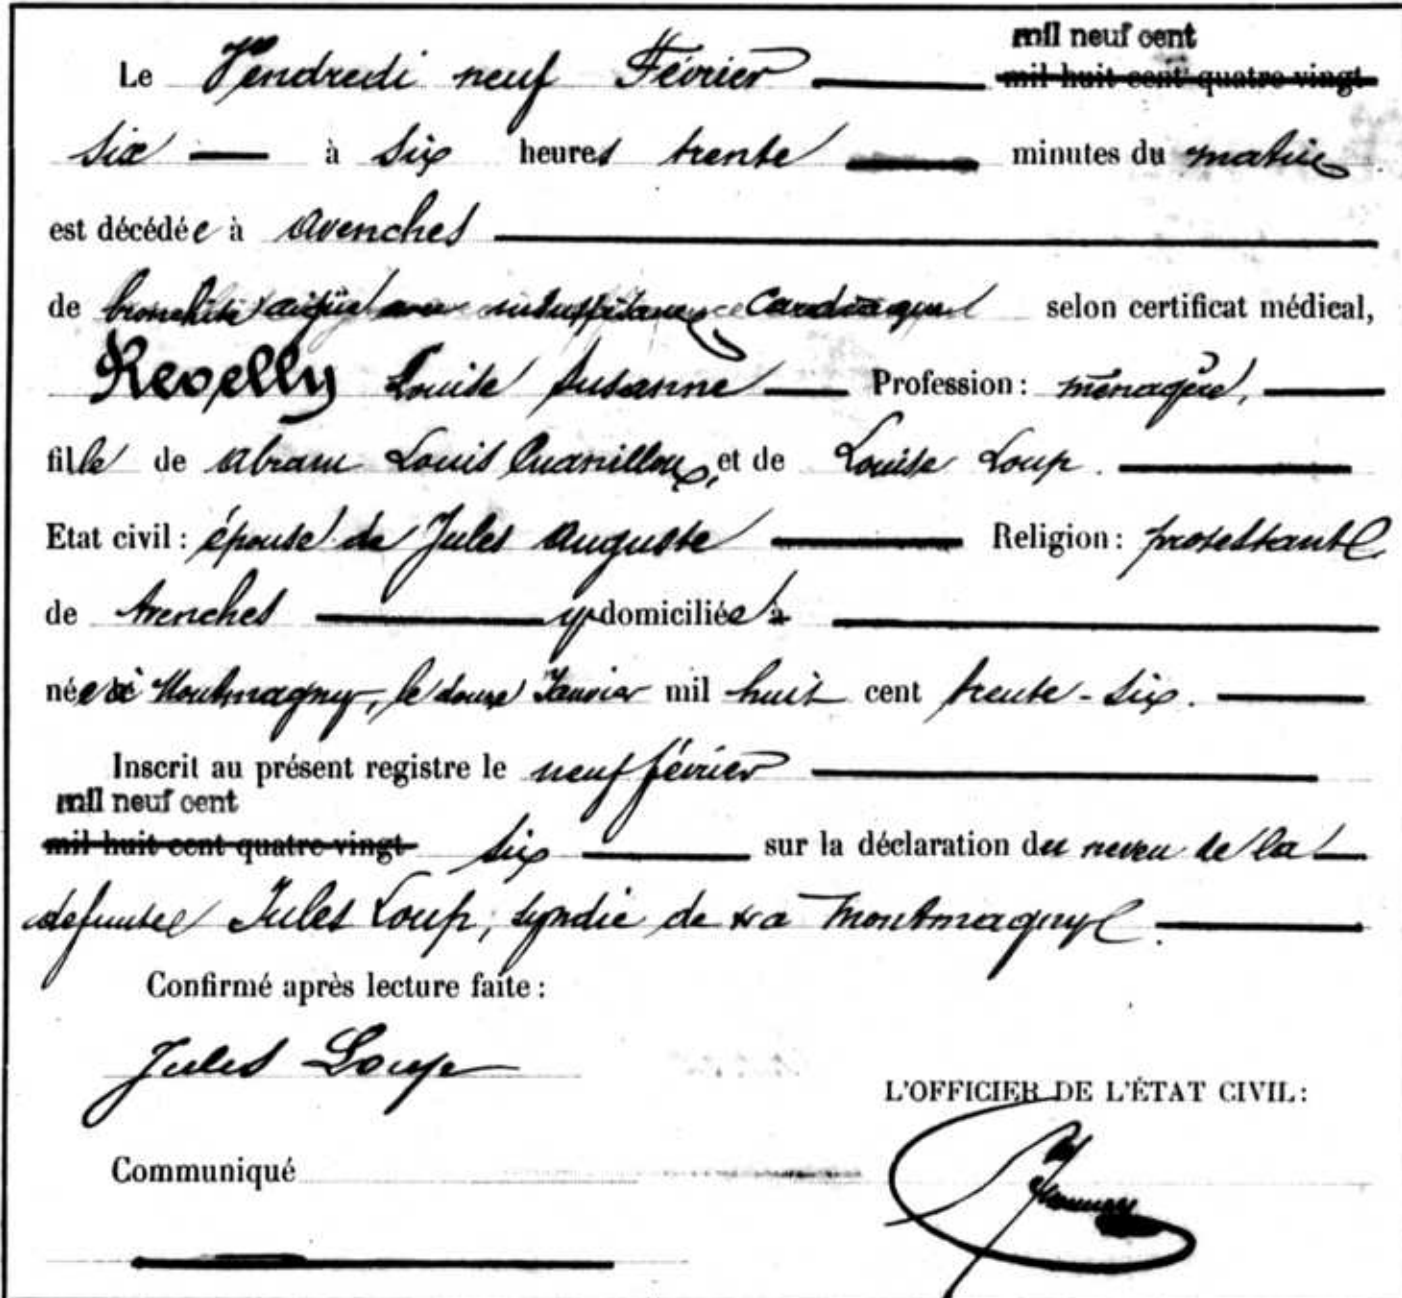 mil neuf cent
Le Vendredi neuf Février mil huit cent quatre-vingt
six à six heures trente minutes du matin
est décédée à Avenches
de bronchite aigüe avec insuffisance Cardiaque selon certificat médical,
Revelly Louise Susanne Profession: ménagère,
fille de Abram Louis Cuanilloux, et de Louise Loup.
Etat civil: épouse de Jules Auguste Religion: protestante
de Avenches y domiciliée à
née à Montmagny, le douze Janvier mil huit cent trente-six.
Inscrit au présent registre le neuf février
mil neuf cent
mil huit cent quatre-vingt six sur la déclaration du neveu de la
défunte Jules Loup, syndic de & à Montmagny.
Confirmé après lecture faite:
Jules Loup
L'OFFICIER DE L'ÉTAT CIVIL:
Communiqué